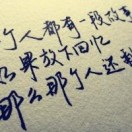 个人都有一段故事
如果放下回忆
那么那个人还